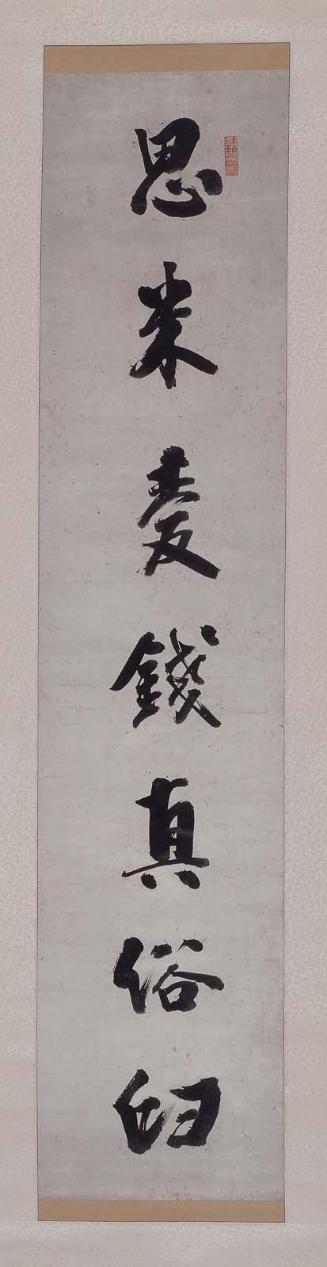 思米麦錢真俗